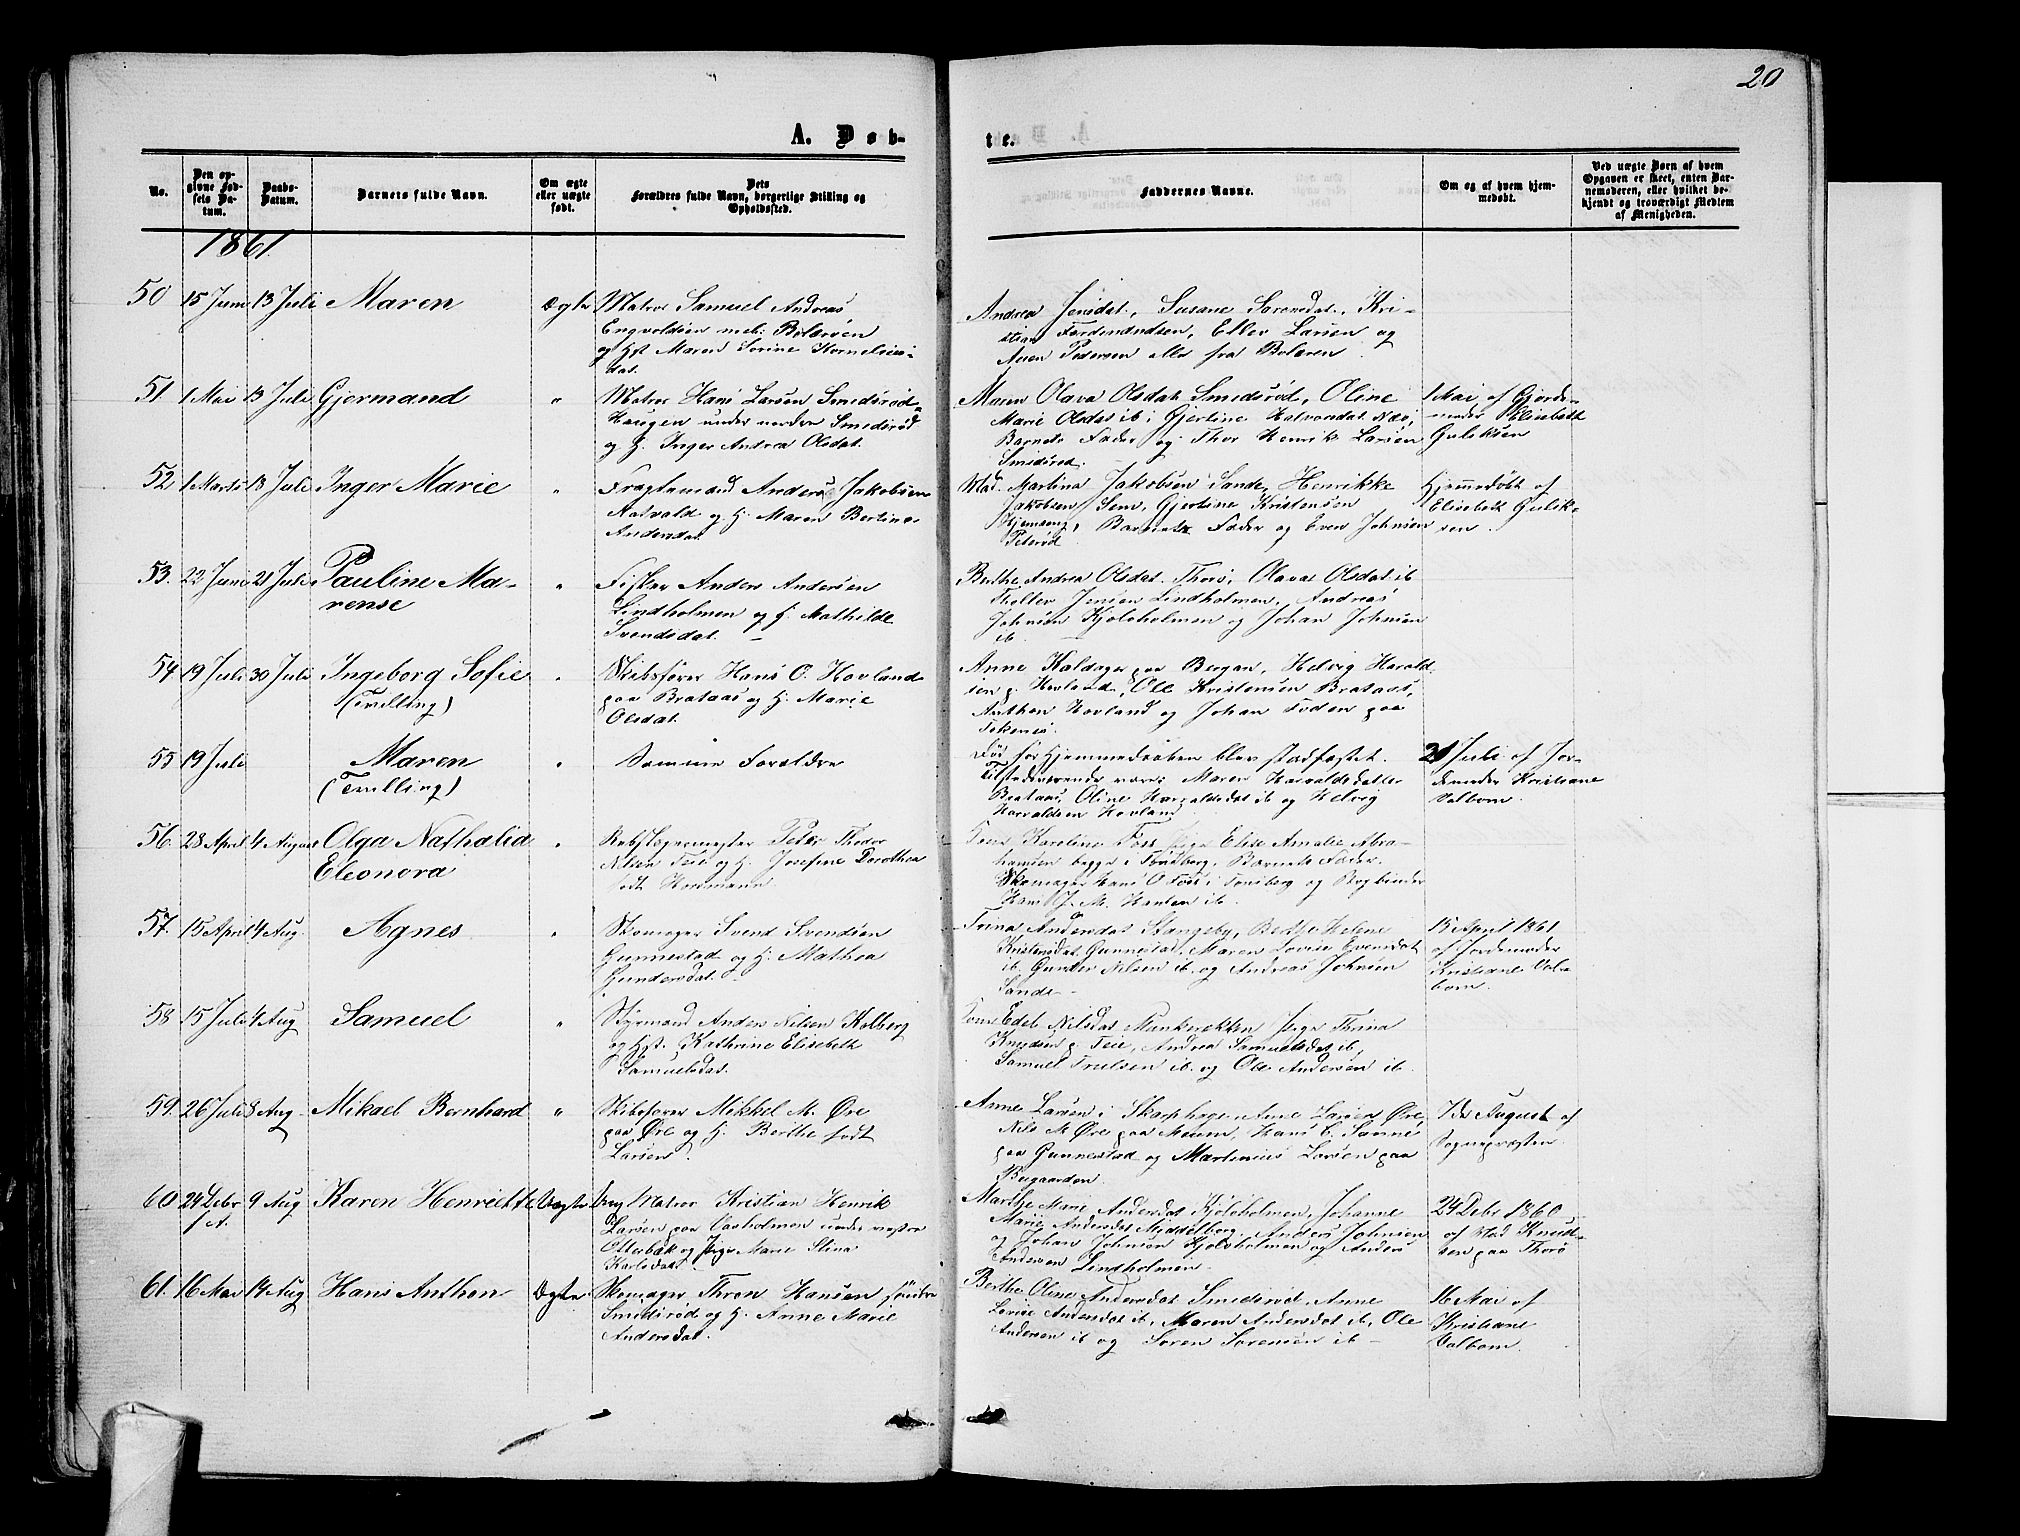 20
A. Døb-
te.
No.
Den op-
givne Fød-
sels Da-
tum.
Daabs-
Datum.
Barnets fulde Navn.
Om ægte
eller uægte
født.
Dets
Forældres fulde Navn, borgerlige Stilling og
Opholdssted.
Faddernes Navne.
Om og af hvem hjem-
medøbt.
Ved uægte Børn af hvem
Opgaven er skeet, enten Bar-
nemoderen, eller hvilket be-
kjendt og troværdigt Medlem
af Menigheden.
1861.
50 15 Juni 13 Juli Maren Ægte Matros Samuel Andreas
Engvoldsen
og Hst Maren Sorine Kornelius-
dat.
Andrea Jensdat., Susane Sorensdat., Kri-
stian Ferdinandsen, Ellev Larsen og
Pedersen alle fra Bolæren.
51. 1 Mai 13 Juli Gjermand " Matros Hans Larsen Smidsrød-
Haugen under nordre Smidsrød
og H. Inger Andrea Olsdat.
Maren Olava Olsdat Smidsrød, Oline
Marie Olsdat ib; Gjertine Halvorsdat Næs;
Barnets Fader og Thor Henrik Larsen
Smidsrød.
1 Mai af Gjorde-
moder Elisabeth
Guliksen
52 1 Marts 13 Juli Inger Marie " Fragtemand Anders Jakobsen
og H. Maren Bertine
Andersdat.
Mad. Martina Jakobsen Sande, Henrikke
Jakobsen Sem, Gjertine Kristensen
Barnets Fader og Even Johnsen
Hjemmedøbt af
Elisabeth Gulik-
sen.
53. 22 Juni 21 Juli Pauline Ma-
rense
" Fisker Anders Andersen
Lindholmen og H. Mathilde
Svendsdat.
Berthe Andrea Olsdat Thorø, Olava Olsdat ib
Jensen Lindholmen, Andreas
Johnsen Kjøløholmen og Johan Johnsen
ib.
54 19 Juli 30 Juli Ingeborg Sofie
(Tvilling)
" Skibsfører Hans O. Hovland
paa Brataas og H. Marie
Olsdat.
Anne Kaldager paa Bergan, Helvig Harald-
sen p. Hovland, Ole Kristensen Brataas,
Anthon Hovland og Johan Foden paa
55 19 Juli Maren
(Tvilling)
" Samme Forældre
Død før Hjemmedaaben blev stadfæstet.
Tilstedeværende vare: Maren Haraldsdatter
Brataas, Oline Haraldsdat ib og Helvig
Haraldsen Hovland
21 Juli af Jor-
demoder Kristiane
Valbom.
56. 28 April 4 August Olga Nathalia
Eleonora
" Rebslagermester Peter Thodor
Nilsen Teie og H. Josefine Dorothea
født Hormann.
Karoline Foss, Pige Elise Amalie Abra-
hamsen begge i Tønsberg, Barnets Fader,
Skomager Hans O Foss i Tønsberg og Bogbinder
Hans J. M. Hansen ib.
57. 15 April 4 Aug. Agnes " Skomager Svend Svendsen
Gunnestad og H. Mathea
Gundersdat.
Trina Andersdat Stangeby, Berthe Helene
Kristensdat Gunnestad, Maren Lovise Evensdat
ib. Gunder Nilsen ib. og Andreas Johnsen
Sande
15 April 1861
af Jordemoder
Kristiane Val-
bom.
58 15 Juli 4 Aug Samuel " Styrmand Anders Nilsen Kolberg
og Hst. Kathrine Elisabeth
Samuelsdat.
Kone Edel Nilsdat Munkerekken, Pige Thrina
Knudsen p. Teie, Andrea Samuelsdat ib,
Samuel Trulsen ib. og Ole Andersen ib.
59. 26 Juli 8 Aug. Mikael Bernhard " Skibsfører Mikkel M. Øre
paa Øre og H. Berthe født
Larsen.
Anne Larsen i Skarphage, Anne Larsen Øre,
Nils M Øre paa Meum, Hans C. Sanne
paa Gunnestad og Martinius Larsen paa
Bugaarden
7de August af
Sognepræsten.
60 24 Debr
f.A.
9 Aug Karen Henriette Uægte Ung Matros Kristian Henrik
Larsen paa Vasholmen under vestre
Otterbæk og Pige Marie Stina
Karlsdat.
Marthe Marie Andersdat Kjøløholmen, Johanne
Marie Andersdat Middelborg, Anders Johnsen
og Johan Johnsen Kjøløholmen og Anders
Andersen Lindholmen
24 Debr 1860
af Mad Knud-
sen paa Thorø
61. 16 Mai 14 Aug Hans Anthon Ægte Skomager Thron Hansen søndre
Smidsrød og H. Anne Marie
Andersdat.
Berthe Oline Andersdat Smidsrød, Anne
Lovise Andersdat ib, Maren Andersdat ib, Ole
Andersen ib og Søren Sørensen ib
16 Mai af
Kristiane
Valbom.